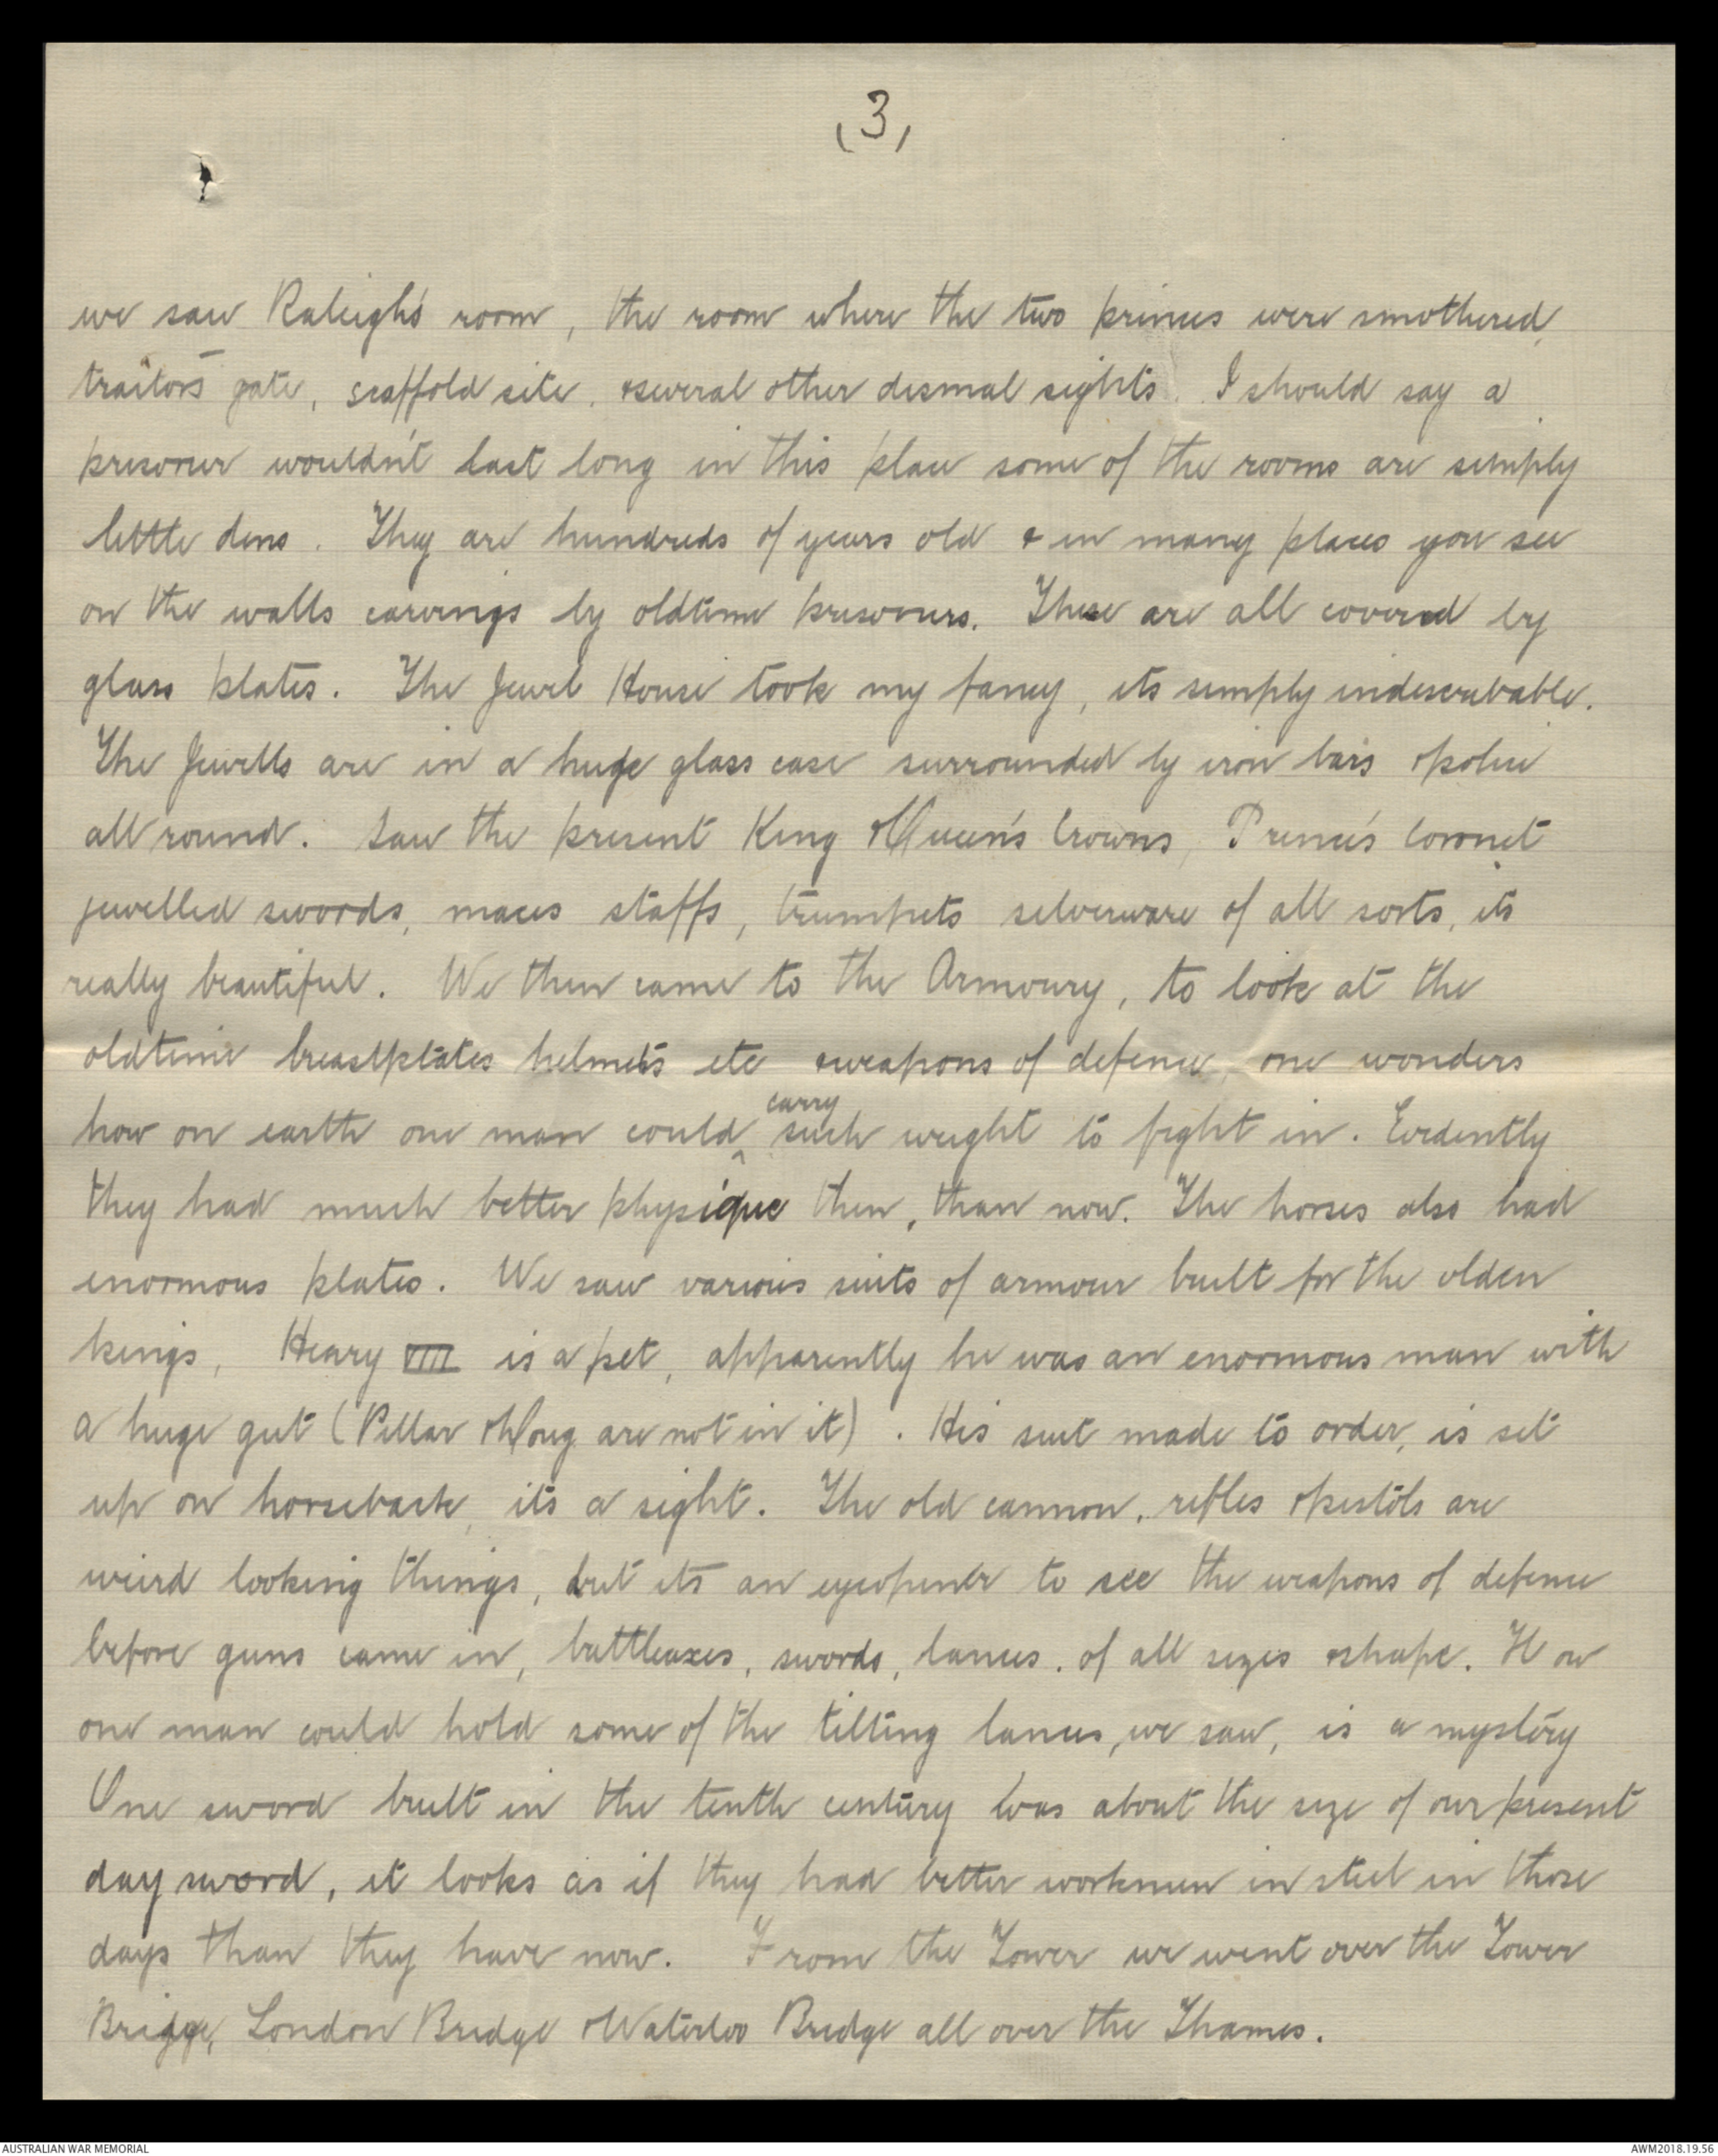 (3)
we saw Raleigh's room, the room where the two princes were smothered,
traitors gate, scaffold site, & several other dismal sights. I should say a
prisoner wouldn't last long in this place some of the rooms are simply
little dens. They are hundreds of years old & in many places you see
on the walls carvings by oldtime prisoners. These are all covered by
glass plates. The Jewel House took my fancy, its simply indescribable.
The Jewells are in a huge glass case surrounded by iron bars & police
all round. Saw the present King & Queen's Crowns, Prince's Coronet
jewelled swords, maces staffs, trumpets silverware of all sorts, its
really beautiful. We then came to the Armoury, to look at the
oldtime breastplates helmets etc & weapons of defence, one wonders
how on earth one man could carry such weight to fight in. Evidently
they had much better physique then, than now. The horses also had
enormous plates. We saw various suits of armour built for the olden
kings, Henry VIII is a pet, apparently he was an enormous man with
a huge gut (Pillar & Doug are not in it). His suit made to order, is set
up on horseback, its a sight. The old cannon, rifles & pistols are
weird looking things, but its an eyeopener to see the weapons of defence
before guns came in, battleaxes, swords, lances, of all sizes & shape. How
one man could hold some of the tilting lances, we saw, is a mystery
One sword built in the tenth century was about the size of our present
day sword, it looks as if they had better workmen in steel in those
days than they have now. From the Tower we went over the Tower
Bridge, London Bridge & Waterloo Bridge all over the Thames.
AUSTRALIAN WAR MEMORIAL
AWM2018.19.56